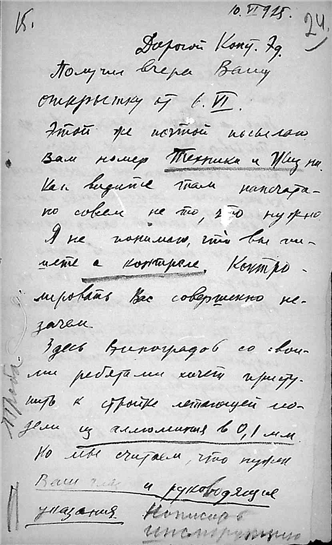 15.
10.VI 925.
24
Дорогой Конст. Эд.
Получил вчера Вашу
открытку от 6.VI.
Этой же почтой посылаю
Вам номер Техника и Жизнь
Как видите там напечата-
но совсем не то, что нужно
Я не понимаю, что Вы пи-
шете о контроле. Контро-
лировать Вас совершенно не-
зачем.
Здесь Виноградов со свои-
ми ребятами хочет присту-
пить к стройке летающей мо-
дели из аллюминия в 0,1 мм.
Но мы считаем, что нужен
Ваш и руководящие
указания. Написать
инструкцию